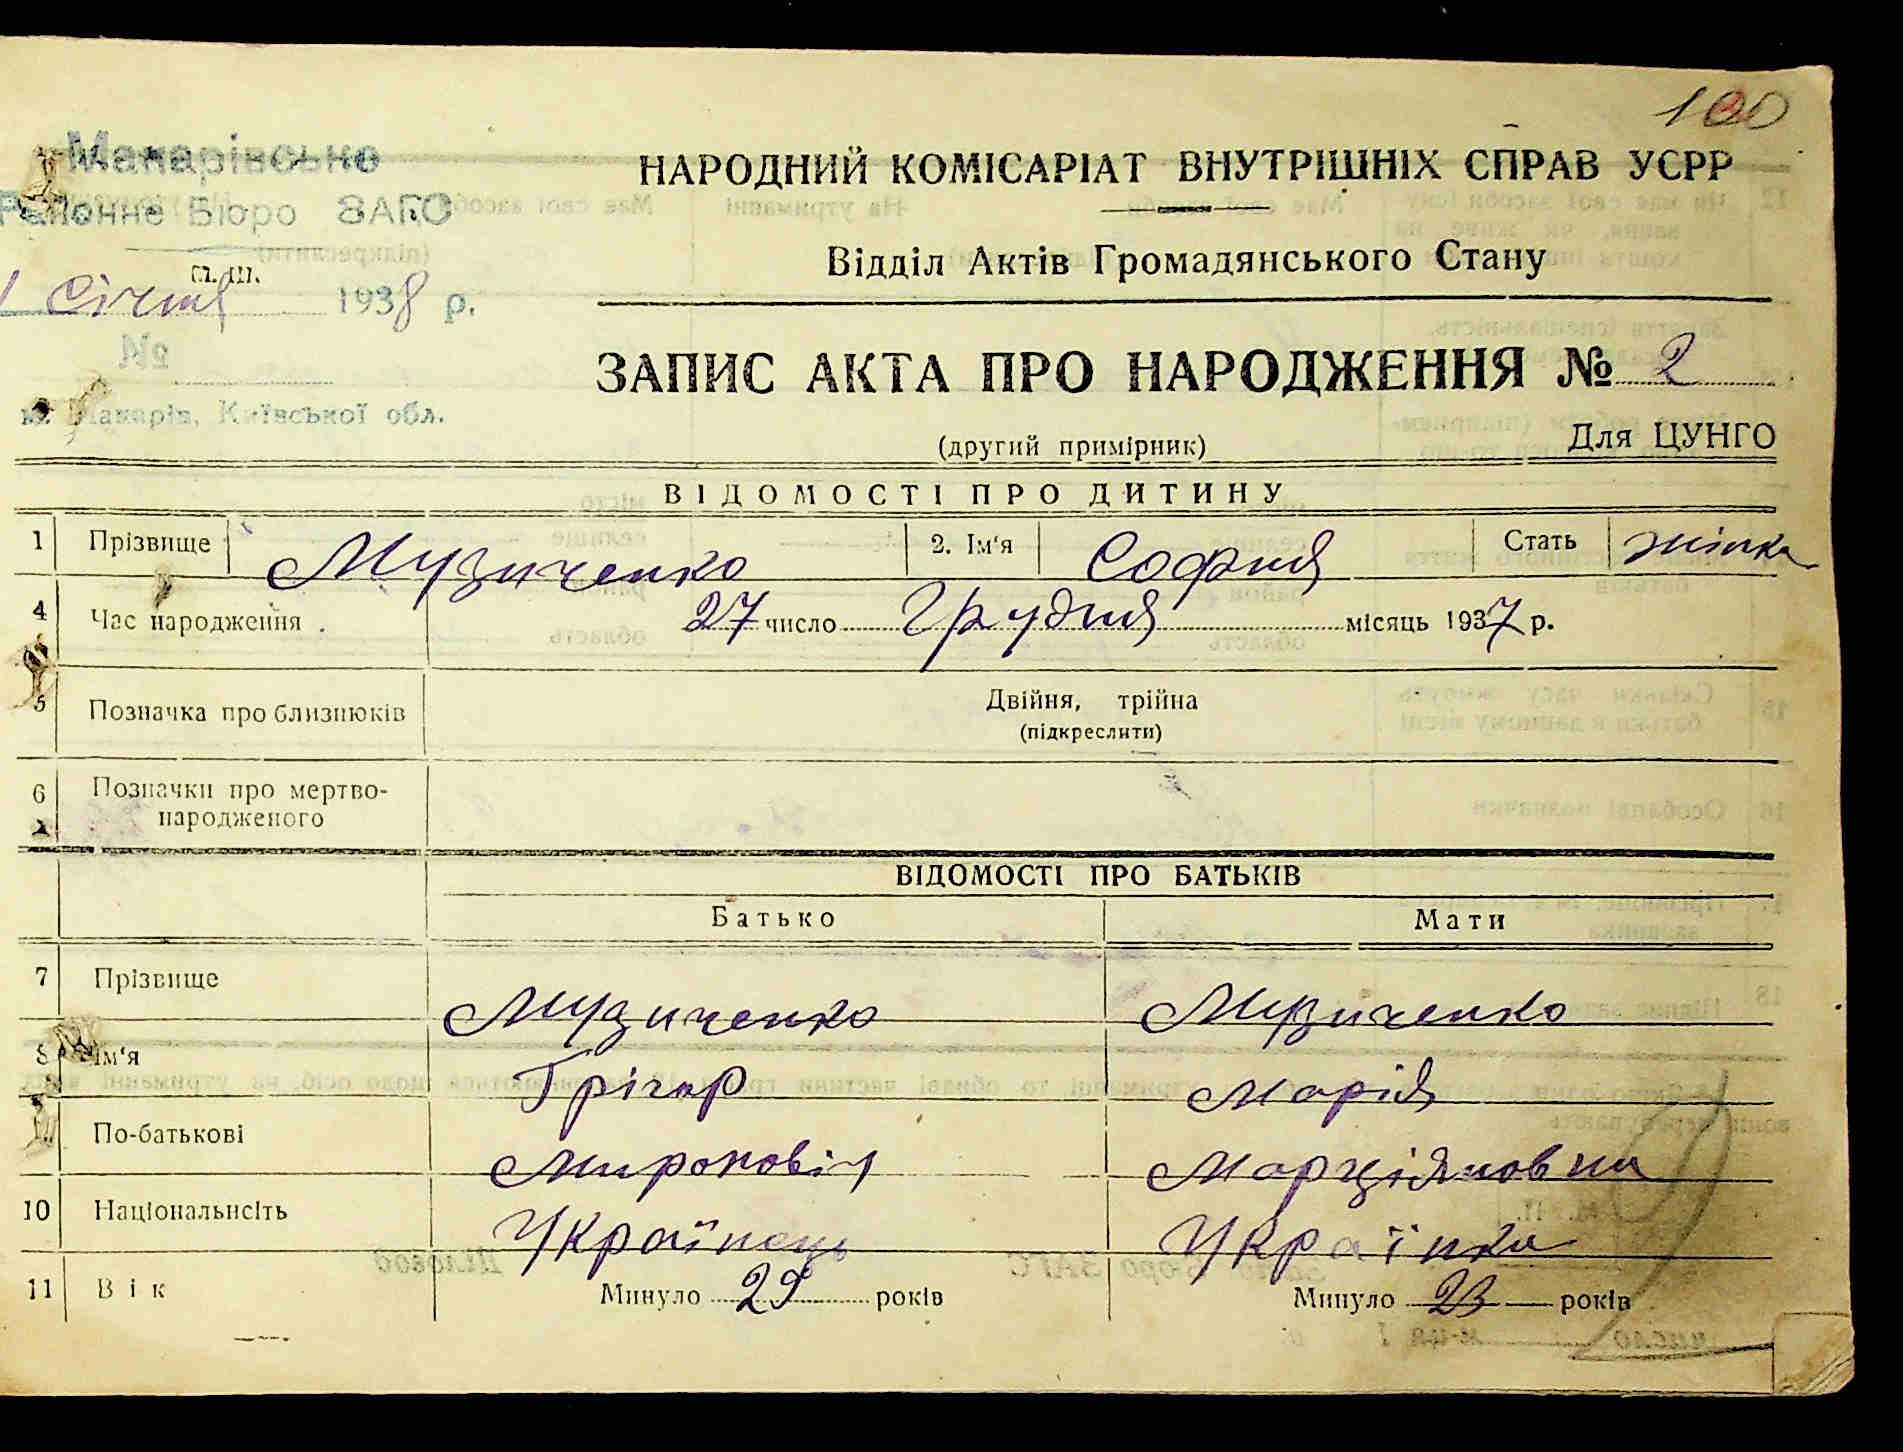 100
Макарівське
Районне Бюро ЗАГС
1 Січня 1938 р.
№
м. Макарів, Київської обл.
НАРОДНИЙ КОМІСАРІАТ ВНУТРІШНІХ СПРАВ УСРР
Відділ Актів Громадянського Стану
ЗАПИС АКТА ПРО НАРОДЖЕННЯ № 2
(другий примірник)
Для ЦУНГО
ВІДОМОСТІ ПРО ДИТИНУ
1 Прізвище Музиченко 2. Ім'я София Стать жінка
4 Час народження 27 число Грудня місяць 1937 р.
5 Позначка про близнюків Двійня, трійна
(підкреслити)
6 Позначки про мертво-
народженого
ВІДОМОСТІ ПРО БАТЬКІВ
Батько Мати
7 Прізвище Музиченко Музиченко
8 Ім'я Грігор Марія
По-батькові Мироновіч Марціяновна
10 Національнсіть Українець Українка
11 Вік Минуло 29 років Минуло 23 років